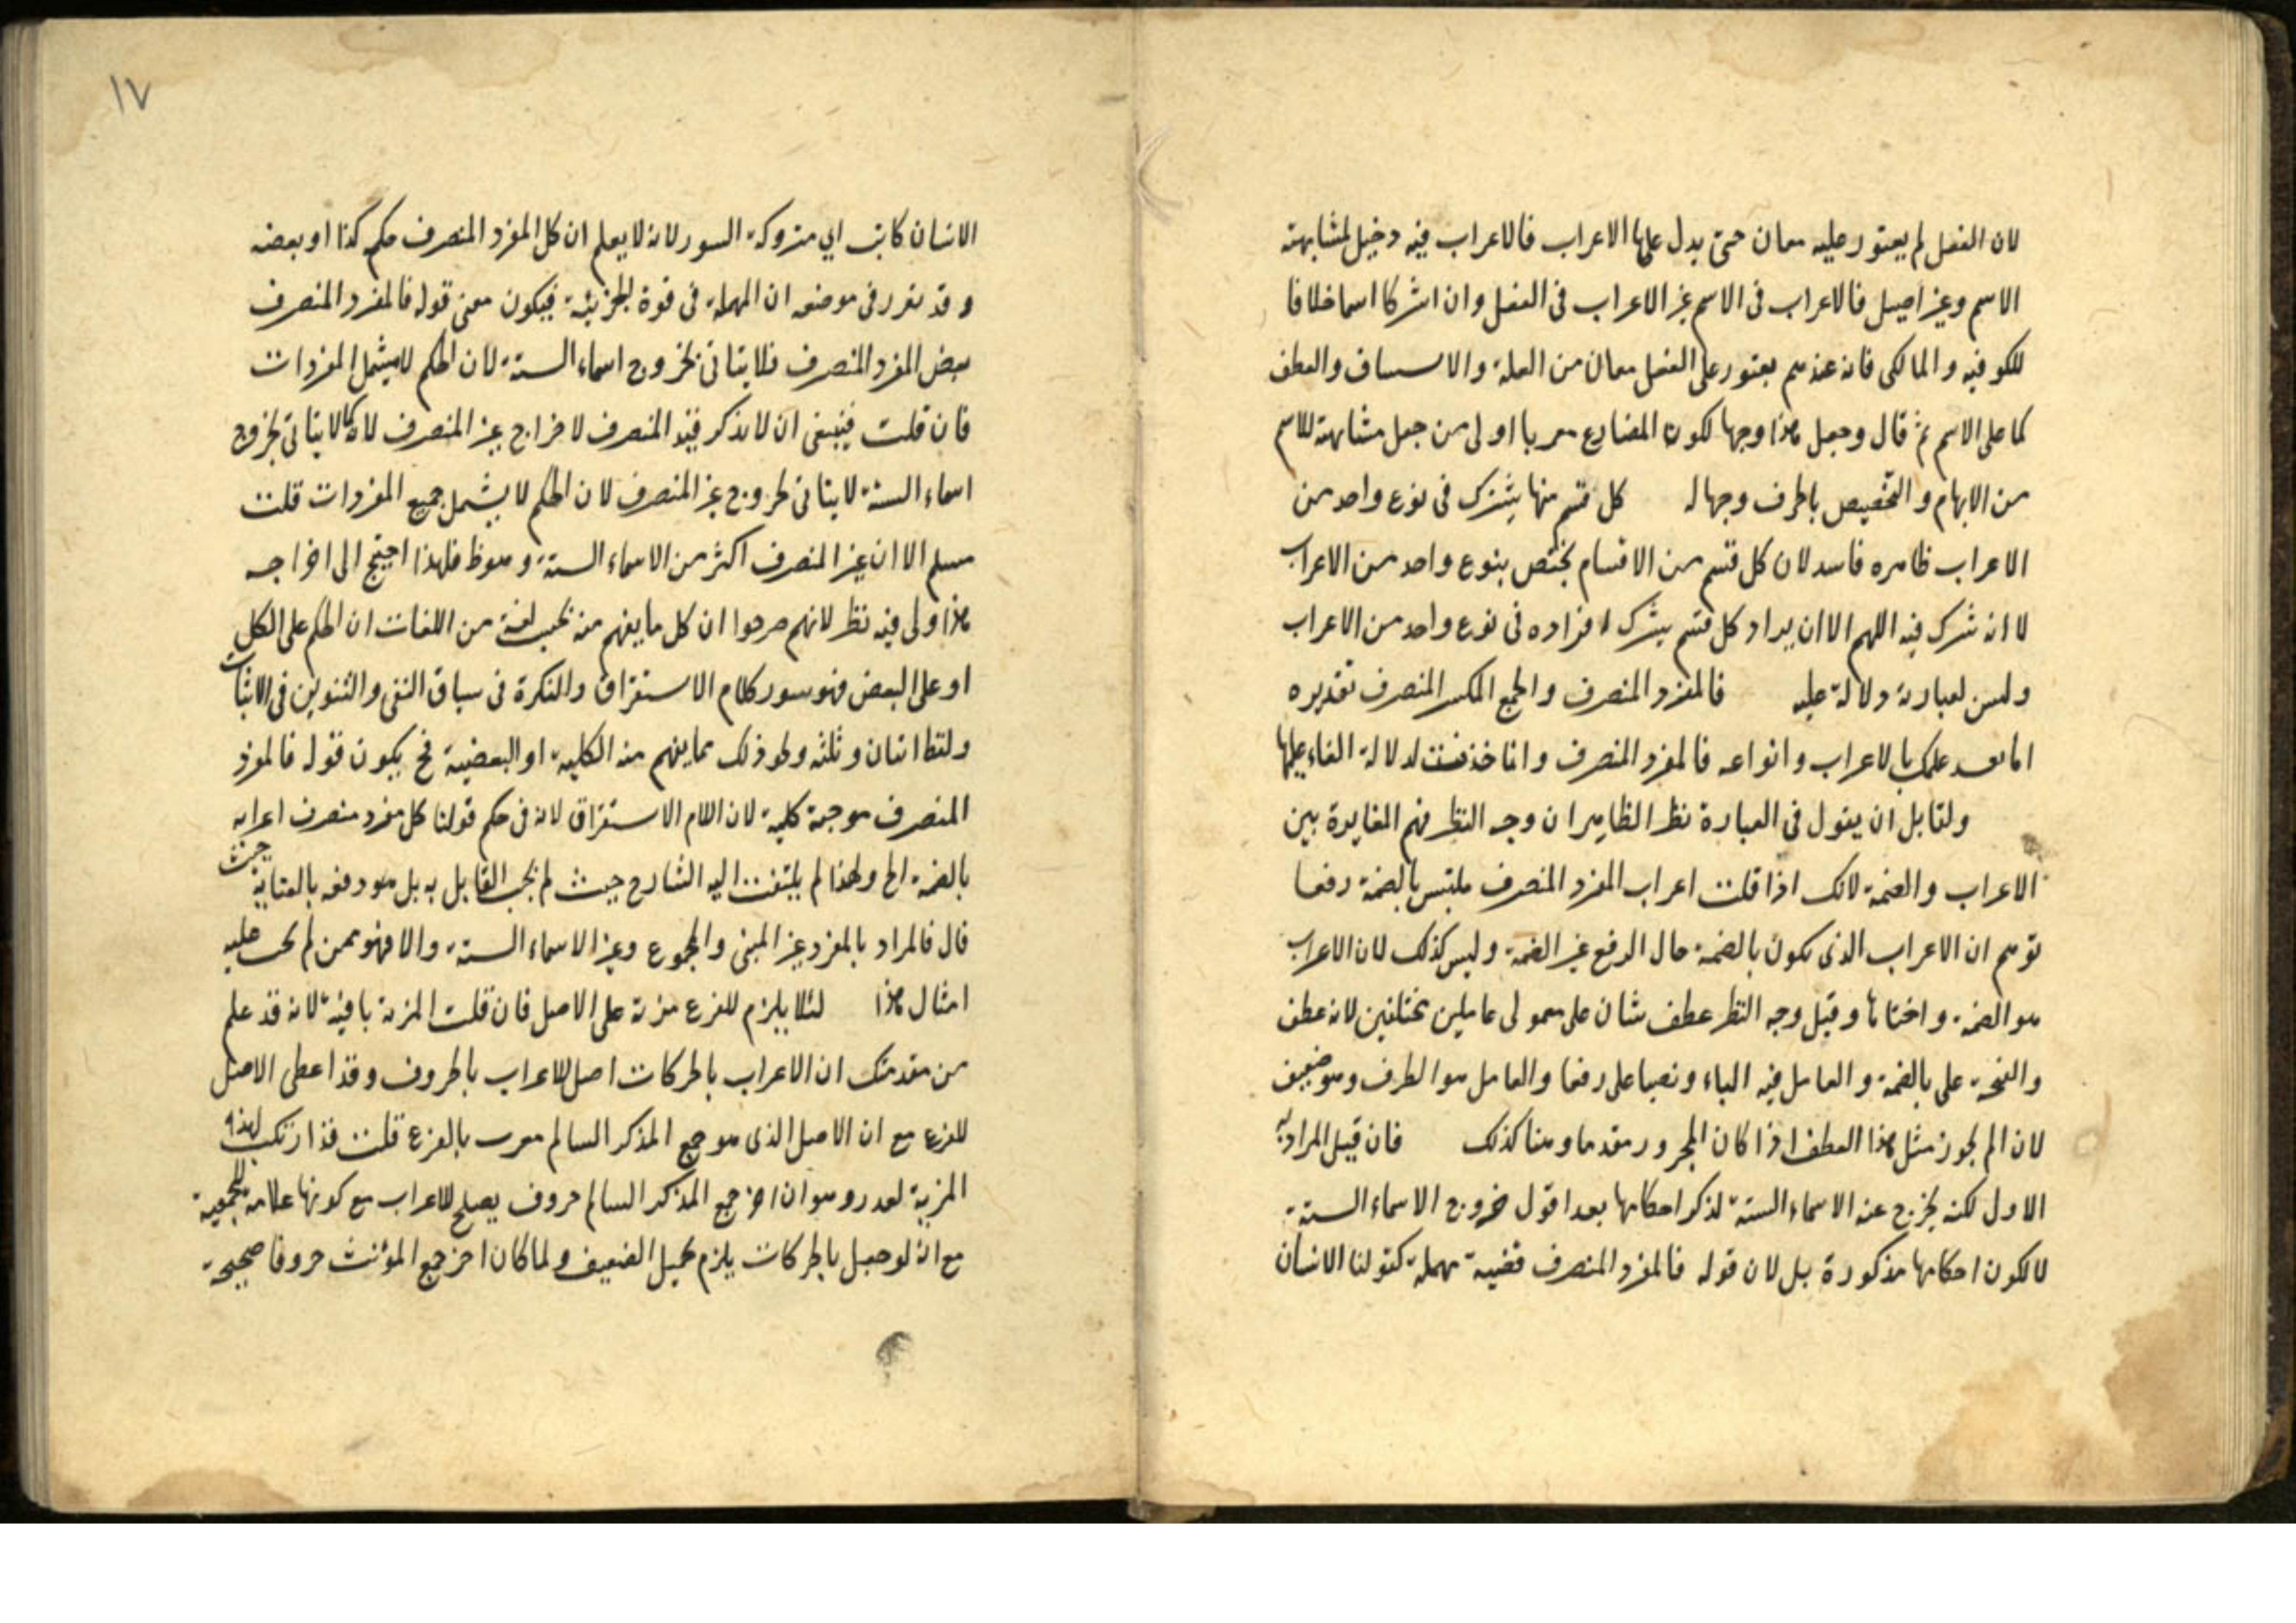 لان الفعل لم يعتور عليه معان حتى يدل عليها الاعراب فالاعراب فيه دخيل لمشابهته
الاسم وغير اصيل فالاعراب فى الاسم غير الاعراب فى الفعل وان اشتركا اسما خلافا
للكوفيه والمالكى فانه عندهم يعتور على الفعل معان من العلة والاستيناف والعطف
كما على الاسم ثم قال وجعل هذا وجها لكون المضارع معربا اولى من جعل مشابهته للاسم
من الابهام والتخصيص باطرف وجها له كل قسم منها يشترك فى نوع واحد من
الاعراب ظاهره فاسد لان كل قسم من الاقسام يختص بنوع واحد من الاعراب
لا انه شرك فيه اللهم الا ان يراد كل قسم يشرك افراده فى نوع واحد من الاعراب
وليس لعبارته دلالة عليه فالمفرد المنصرف والجمع المكسر المنصرف تقديره
اما بعد علمك بالاعراب وانواعه فالمفرد المنصرف وانما خذفت لدلالة الفاء عليها
ولقايل ان يقول فى العبارة نظر الظاهر ان وجه النظر فهم المغايرة بين
الاعراب والضمة لانك اذا قلت اعراب المفرد المنصرف ملتبس بالضمة رفعا
توهم ان الاعراب الذى يكون بالضمة حال الرفع غير الضمة وليس كذلك لان الاعراب
هو الضمة واختاها وقيل وجه النظر عطف شان على معمولى عاملين مختلفين لانه عطف
والفتحة على بالضمة والعامل فيه الباء ونصبا على رفعا والعامل هو الطرف وهو ضعيف
لان الم لجوز مثل هذا العطف اذا كان المجرور مقدما وهنا كذلك فان قيل المراد به
الاول لكنه يخرج عنه الاسماء الستة لذكر احكامها بعد اقول خروج الاسماء الستة
لا لكون احكامها مذكورة بل لان قوله فالمفرد المنصرف قضية مهملة كقولنا الانسان
١٧
الانسان كاتب اي متروكة السور لانه لا يعلم ان كل المفرد المنصرف حكم كذا او بعضه
وقد تقرر فى موضعه ان المهملة فى قوة الجزئية فيكون معنى قوله فالمفرد المنصرف
بعض المفرد المنصرف فلا يتاتى بخروج اسماء الستة لان الحكم لا يشمل المفردات
فان قلت فينبغى ان لا يذكر قيد المنصرف لاخراج غير المنصرف لانه كما لا يتاتى بخروج
اسماء الستة لا يتاتى لخروج غير المنصرف لان الحكم لا يشمل جميع المفردات قلت
مسلم الا ان غير المنصرف اكثر من الاسماء الستة وهو ظ فلهذا احتيج الى اخراجه
هذا ولى فيه نظر لانهم صرحوا ان كل ما يفهم منه بحسب لغة من اللغات ان الحكم على الكل
او على البعض فهو سور كلام الاستغراق والنكرة فى سياق النفى والتنوين فى الاثبات
ولفظ اثنان وثلثه ونحو ذلك مما يفهم منه الكلية او البعضية فح يكون قوله فالمفرد
المنصرف موجبة كلية لان اللام الاستغراق لانه فى حكم قولنا كل مفرد منصرف اعرابه
بالضمة الخ ولهذا لم يلتفت اليه الشارح حيث لم يجب القايل به بل هو دفعه بالعناية حيث
قال فالمراد بالمفرد غير المبنى والمجموع وغير الاسماء الستة والا فهو ممن لم يخف عليه
امثال هذا لئلا يلزم للفرع مزية على الاصل فان قلت المزية باقية لانه قد علم
من مقدمتك ان الاعراب بالحركات اصل للاعراب بالحروف وقد اعطى الاصل
للفرع مع ان الاصل الذى هو جمع المذكر السالم معرب بالفرع قلت قد ارتكب لهذه
المزية لعذر وهو ان اخر جمع المذكر السالم حروف يصلح للاعراب مع كونها علامة للجمعية
مع انه لو جعل بالحركات يلزم تحميل الضعيف ولما كان اخر جمع المؤنث حروفا صحيحة